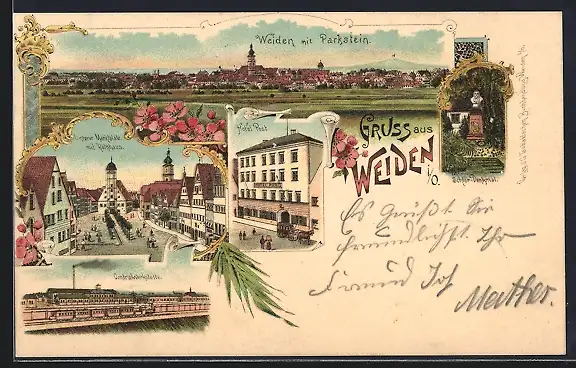 Weiden mit Parkstein.
Oberer Marktplatz
mit Rathhaus.
Hotel Post
GRUSS aus
WEIDEN
i/O.
Denkmal.
Centralwerkstätte.
Es Grüßt Sie
freundlichst Ihr
Freund Jos